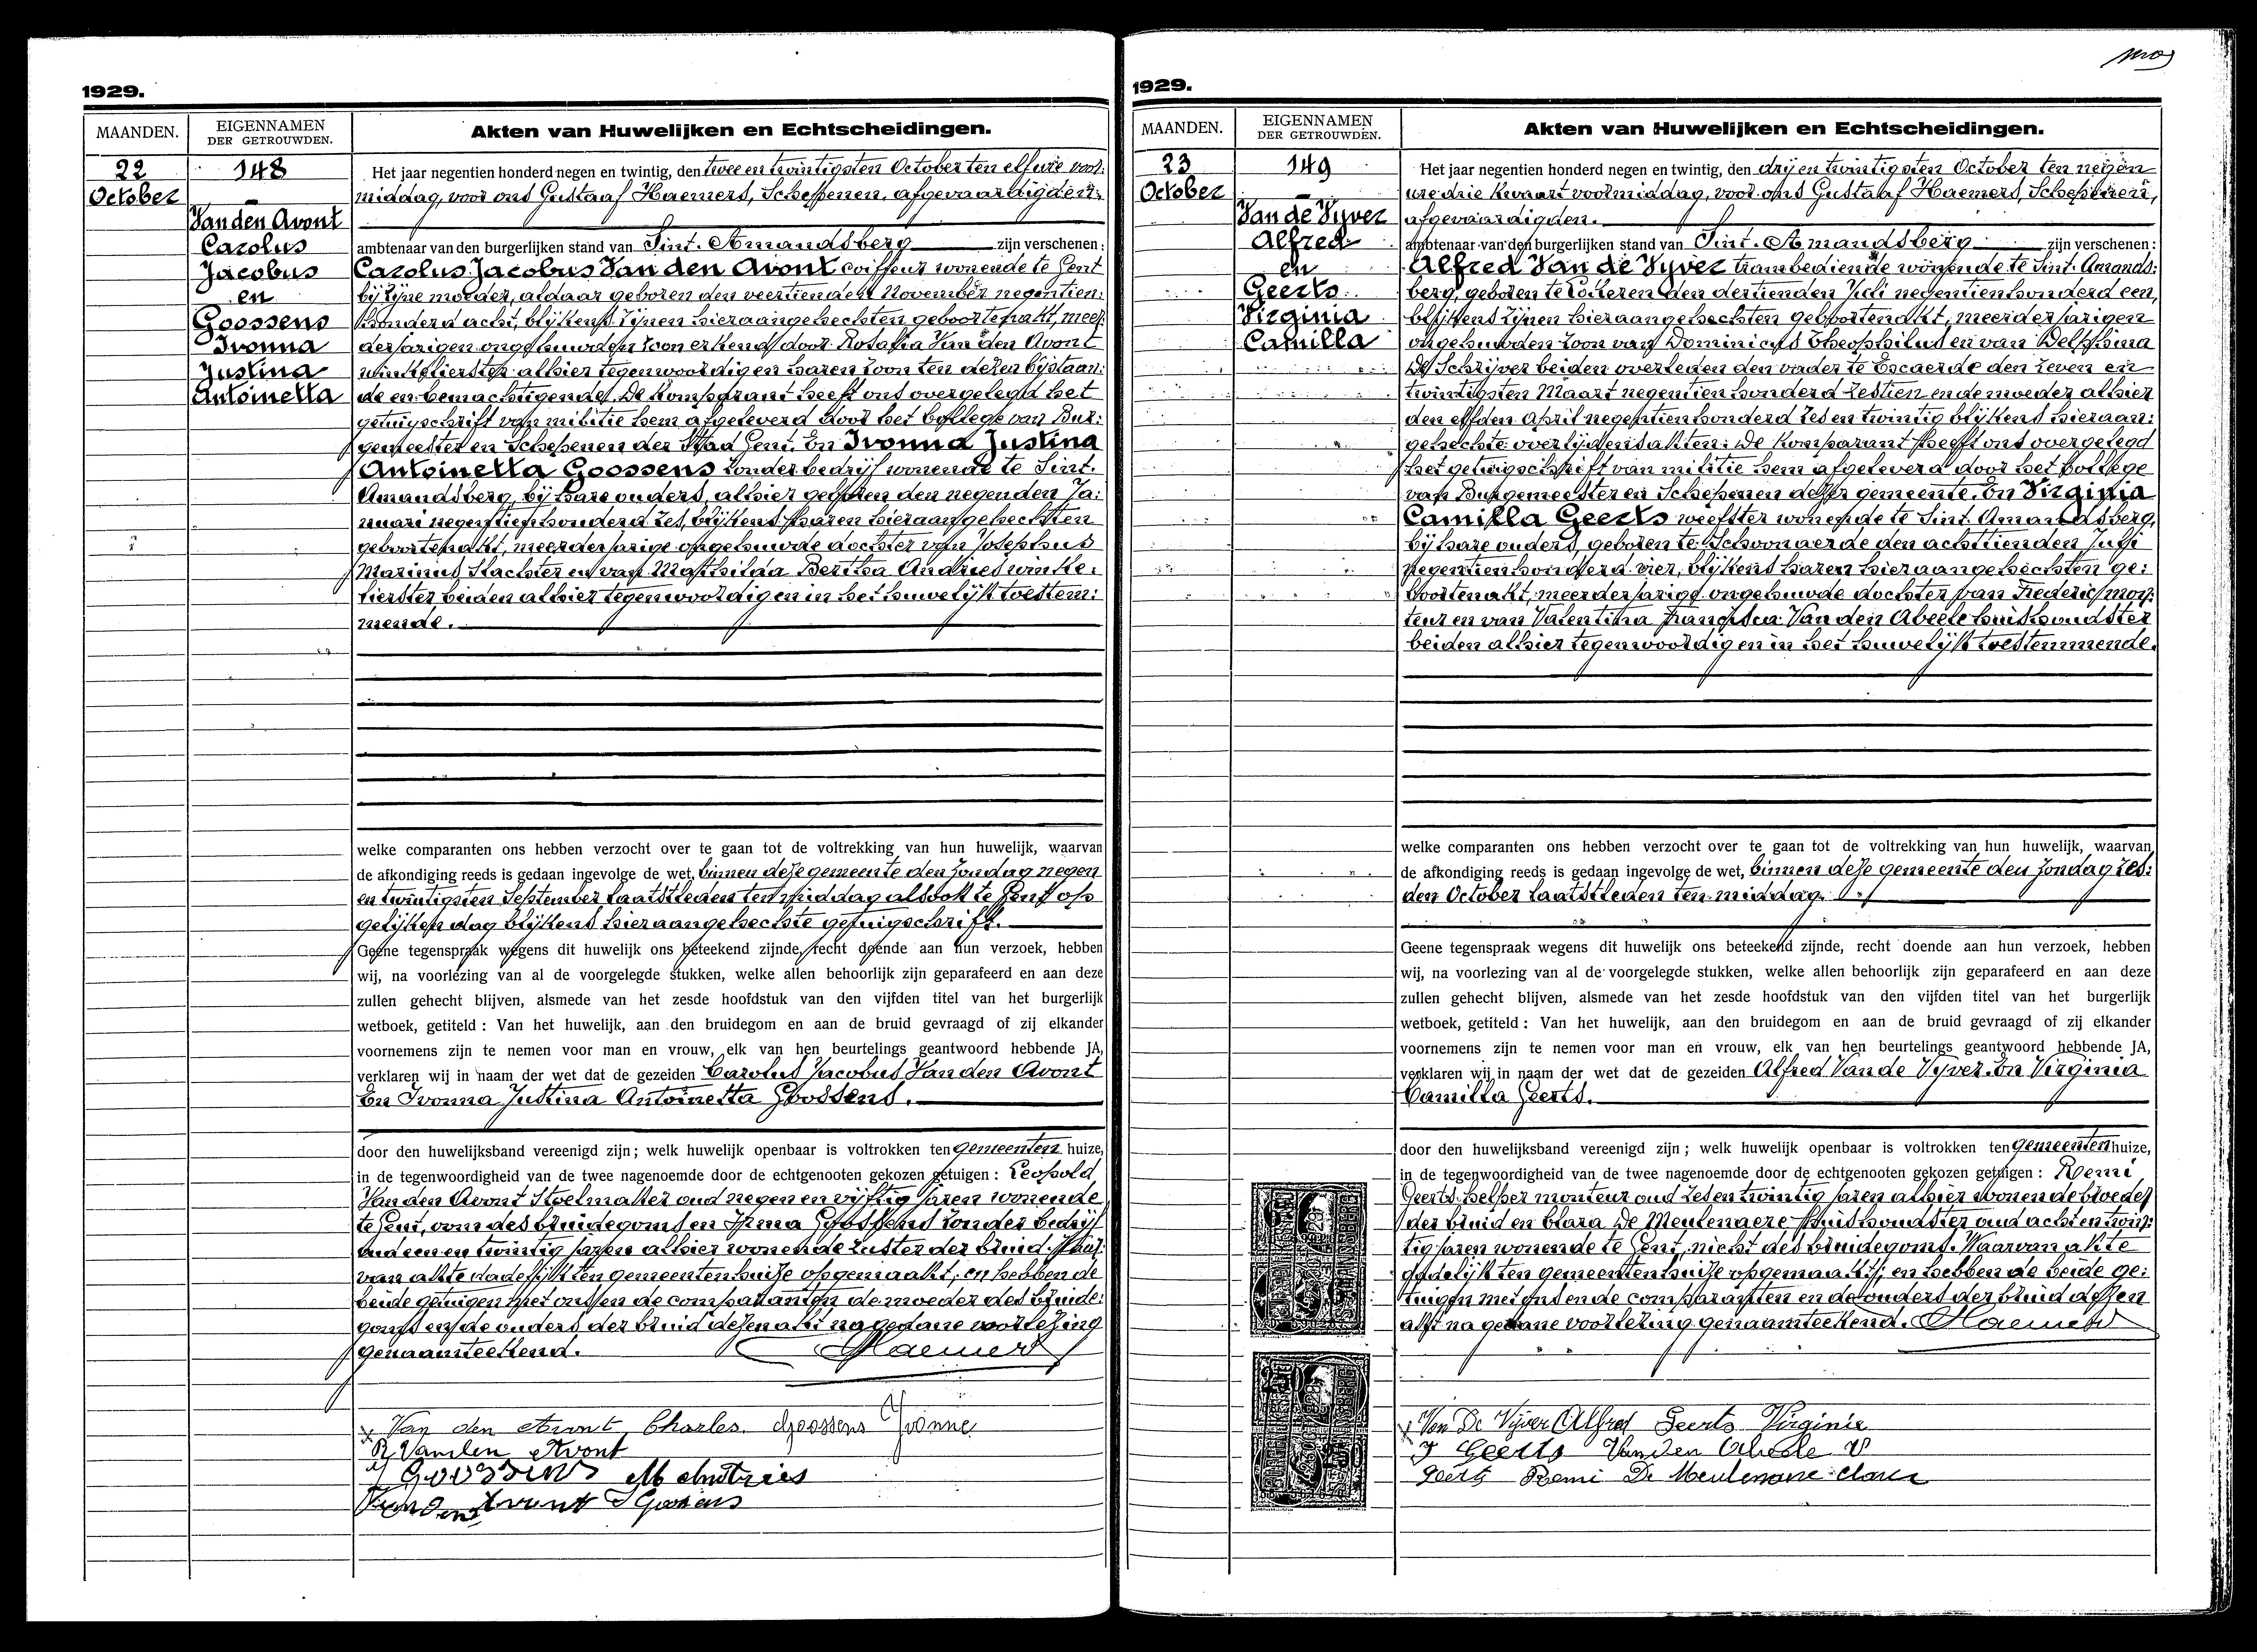 1929.
MAANDEN.
EIGENNAMEN
DER GETROUWDEN.
Akten van Huwelijken en Echtscheidingen.
22
October
148
Van den Avont
Carolus
Jacobus
en
Goossens
Ivonna
Justina
Antoinetta
Het jaar negentien honderd negen en twintig, den twee en twintigsten October ten elf ure voor:
middag, voor ons Gustaaf Haemers, Schepenen, afgevaardigden:
ambtenaar van den burgerlijken stand van Sint. Amandsberg zijn verschenen:
Carolus Jacobus Van den Avont coiffeur wonende te Gent
bij zijne moeder, aldaar geboren den veertienden November negentien:
honderd acht, blijkens zijnen hieraangehechten geboortenakt, meer:
derjarigen ongehuwden zoon erkend door Rosalia Van den Avont
winkelierster alhier tegenwoordig en haren zoon ten dezen bijstaan:
de en bemachtigende. De komparant heeft ons overgelegd het
getuigschrift van militie hem afgeleverd door het Collegie van Bur:
gemeester en Schepenen der Stad Gent. En Ivonna Justina
Antoinetta Goossens zonder bedrijf wonende te Sint.
Amandsberg, bij hare ouders, alhier geboren den negenden Ja:
nuari negentienhonderd zes, blijkens haren hieraangehechten
geboortenakt, meerderjarige ongehuwde dochter van Josephus
Marinus Slachter en van Mathilda Bertha Andries winke:
lierster beiden alhier tegenwoordig en in het huwelijk toestem:
mende.
welke comparanten ons hebben verzocht over te gaan tot de voltrekking van hun huwelijk, waarvan
de afkondiging reeds is gedaan ingevolge de wet, binnen deze gemeente den Zondag negen
en twintigsten September laatstleden ten middag alsook te Gent op
gelijken dag blijkens hieraangehechte getuigschrift.
Geene tegenspraak wegens dit huwelijk ons beteekend zijnde, recht doende aan hun verzoek, hebben
wij, na voorlezing van al de voorgelegde stukken, welke allen behoorlijk zijn geparafeerd en aan deze
zullen gehecht blijven, alsmede van het zesde hoofdstuk van den vijfden titel van het burgerlijk
wetboek, getiteld : Van het huwelijk, aan den bruidegom en aan de bruid gevraagd of zij elkander
voornemens zijn te nemen voor man en vrouw, elk van hen beurtelings geantwoord hebbende JA,
verklaren wij in naam der wet dat de gezeiden Carolus Jacobus Van den Avont
En Ivonna Justina Antoinetta Goossens.
door den huwelijksband vereenigd zijn ; welk huwelijk openbaar is voltrokken ten gemeenten huize,
in de tegenwoordigheid van de twee nagenoemde door de echtgenooten gekozen getuigen : Leopold
Van den Avont Stoelmaker oud negen en vijftig jaren wonende
te Gent, oom des bruidegoms en Irma Goossens zonder bedrijf
oud een en twintig jaren alhier wonende zuster der bruid. Waar:
van akte dadelijk ten gemeentenhuize opgemaakt; en hebben de
beide getuigen met ons en de comparanten de moeder des bruide:
goms en de ouders der bruid dezen akt na gedane voorlezing
genaamteekend. Haemers
Van den Avont Charles. Goossens Yvonne
R Vanden Avont
J Goossens M Andries
Vanden Avont I Goossens
1929.
MAANDEN.
EIGENNAMEN
DER GETROUWDEN.
Akten van Huwelijken en Echtscheidingen.
23
October
149
Van de Vyver
Alfred
en
Geerts
Virginia
Camilla
Het jaar negentien honderd negen en twintig, den drij en twintigsten October ten negen
ure drie kwaart voormiddag, voor ons Gustaaf Haemers, Schepenen,
afgevaardigden.
ambtenaar van den burgerlijken stand van Sint. Amandsberg zijn verschenen :
Alfred Van de Vyver trambediende wonende te Sint. Amands:
berg, geboren te Lokeren den dertienden Juli negentienhonderd een,
blijkens zijnen hieraangehechten geboortenakt, meerderjarigen
ongehuwden zoon van Dominicus Theophilus en van Delphina
De Schrijver beiden overleden den vader te Escaerde den zeven en
twintigsten Maart negentienhonderd zestien en de moeder alhier
den elfden April negentienhonderd zes en twintig blijkens hieraan:
gehechte overlijdensakten. De komparant heeft ons overgelegd
het getuigschrift van militie hem afgeleverd door het Collegie
van Burgemeester en Schepenen dezer gemeente. En Virginia
Camilla Geerts weefster wonende te Sint. Amandsberg,
bij hare ouders, geboren te Schoonaerde den achttienden Juli
negentienhonderd vier, blijkens haren hieraangehechten ge:
boortenakt, meerderjarige ongehuwde dochter van Frederic mon:
teur en van Valentina Francisca Van den Abeele huishoudster
beiden alhier tegenwoordig en in het huwelijk toestemmende.
welke comparanten ons hebben verzocht over te gaan tot de voltrekking van hun huwelijk, waarvan
de afkondiging reeds is gedaan ingevolge de wet, binnen deze gemeente den Zondag zes:
den October laatstleden ten middag.
Geene tegenspraak wegens dit huwelijk ons beteekend zijnde, recht doende aan hun verzoek, hebben
wij, na voorlezing van al de voorgelegde stukken, welke allen behoorlijk zijn geparafeerd en aan deze
zullen gehecht blijven, alsmede van het zesde hoofdstuk van den vijfden titel van het burgerlijk
wetboek, getiteld : Van het huwelijk, aan den bruidegom en aan de bruid gevraagd of zij elkander
voornemens zijn te nemen voor man en vrouw, elk van hen beurtelings geantwoord hebbende JA,
verklaren wij in naam der wet dat de gezeiden Alfred Van de Vyver. En Virginia
Camilla Geerts.
door den huwelijksband vereenigd zijn ; welk huwelijk openbaar is voltrokken ten gemeenten huize,
in de tegenwoordigheid van de twee nagenoemde door de echtgenooten gekozen getuigen : Remi
Geerts helper monteur oud zes en twintig jaren alhier wonende broeder
der bruid en Clara De Meulenaere huishoudster oud acht en twin:
tig jaren wonende te Gent, nicht des bruidegoms. Waarvan akte
dadelijk ten gemeentenhuize opgemaakt; en hebben de beide ge:
tuigen met ons en de comparanten en de ouders der bruid dezen
akt na gedane voorlezing genaamteekend. Haemers
Van De Vijver Alfred Geerts Virginie
F Geerts Vanden Abeele V
Geerts Remi De Meulenaere Clara